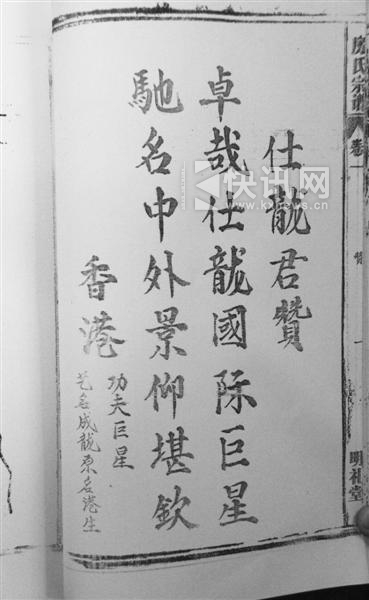 仕龍君贊
卓哉仕龍國际巨星
馳名中外景仰堪欽
香港
功夫巨星
艺名成龍原名港生
房氏宗譜
卷一
贊
一
明禮堂
快讯网